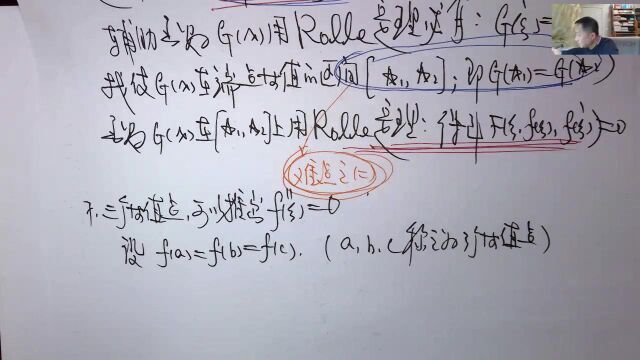 辅助函数G(x)用Rolle定理必有: G'(ξ)=
找使G(x)在端点等值的区间[☆₁, ☆₂]; 即G(☆₁)=G(☆₂)
函数G(x)在[☆₁,☆₂]上用Rolle定理: 得出F(ξ, f(ξ), f'(ξ))=0
难点之二
不. 三个等值点, 可以推出f''(ξ)=0
设 f(a)=f(b)=f(c). (a, b, c 称之为等值点)